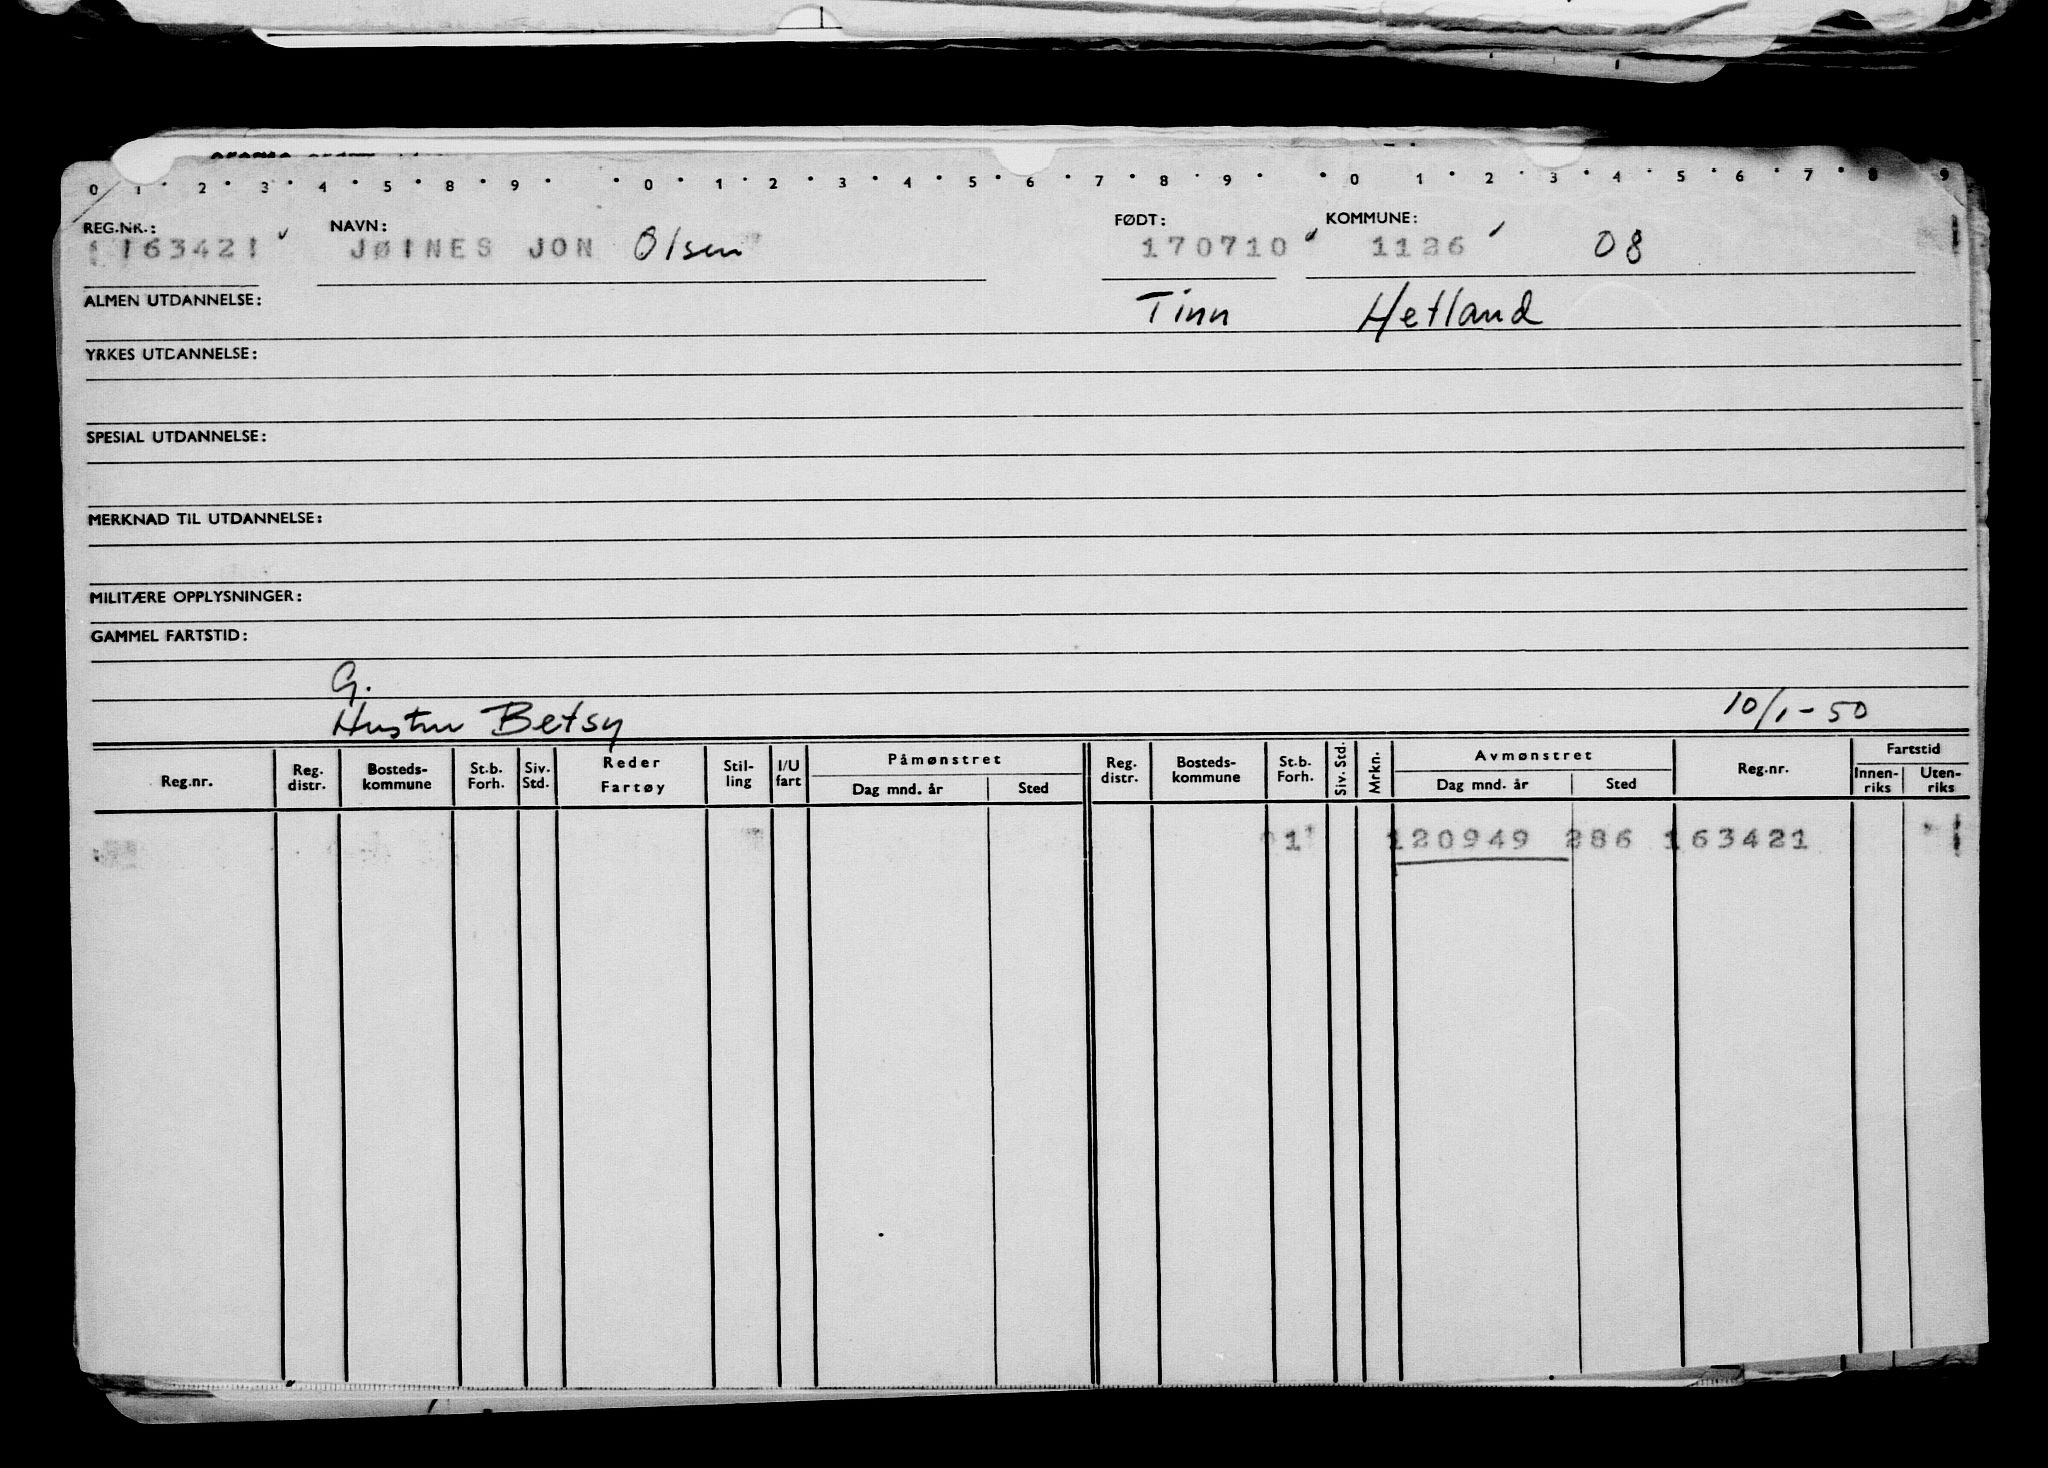 0 1 2 3 4 5 8 9 0 1 2 3 4 5 6 7 8 9 0 1 2 3 4 5 6 7 8 9
REG.NR.: NAVN: FØDT: KOMMUNE:
163421 JØINES JON Olsen 170710 1126 08
ALMEN UTDANNELSE: Tinn Hetland
YRKES UTDANNELSE:
SPESIAL UTDANNELSE:
MERKNAD TIL UTDANNELSE:
MILITÆRE OPPLYSNINGER:
GAMMEL FARTSTID:
G.
Hustru Betsy 10/1-50
Reg.nr. Reg. distr. Bosteds-kommune St.b. Forh. Siv. Std. Reder Fartøy Stil-ling I/U fart Påmønstret Dag mnd. år Sted Reg. distr. Bosteds-kommune St.b. Forh. Siv. Std. Mrkn. Avmønstret Dag mnd. år Sted Reg.nr. Fartstid Innen-riks Uten-riks
01 120949 286 163421